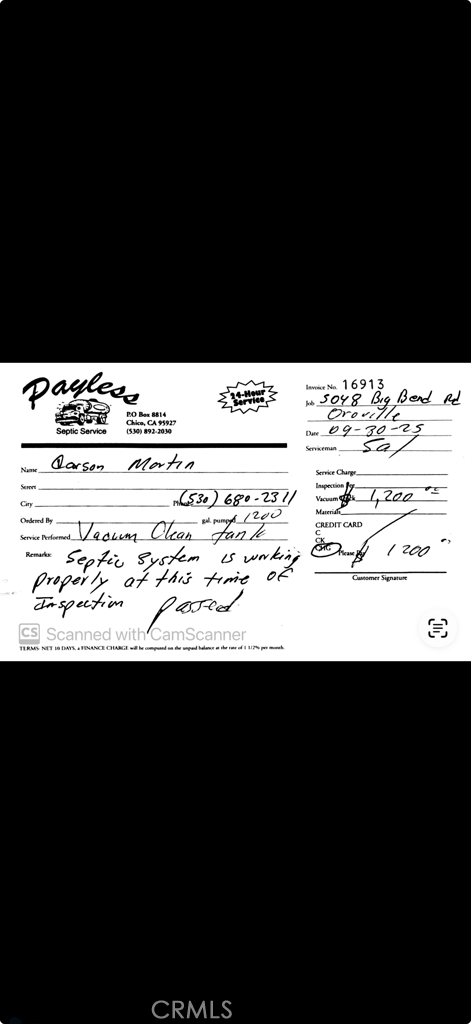 Payless
Septic Service
P.O Box 8814
Chico, CA 95927
(530) 892-2030
24-Hour
Service
Invoice No. 16913
Job 5048 Big Bend Rd
Oroville
Date 09-30-25
Serviceman Sal
Name Carson Martin
Street
City Phone (530) 680-2311
Ordered By gal. pumped 1200
Service Performed Vacuum Clean tank
Remarks: Septic System is working
properly at this time of
Inspection passed
Service Charge
Inspection
Vacuum 1,200
Materials
CREDIT CARD
C
CK
CHG Please 1200
Customer Signature
CS Scanned with CamScanner
TERMS: NET 10 DAYS, a FINANCE CHARGE will be computed on the unpaid balance at the rate of 1 1/2% per month.
CRMLS